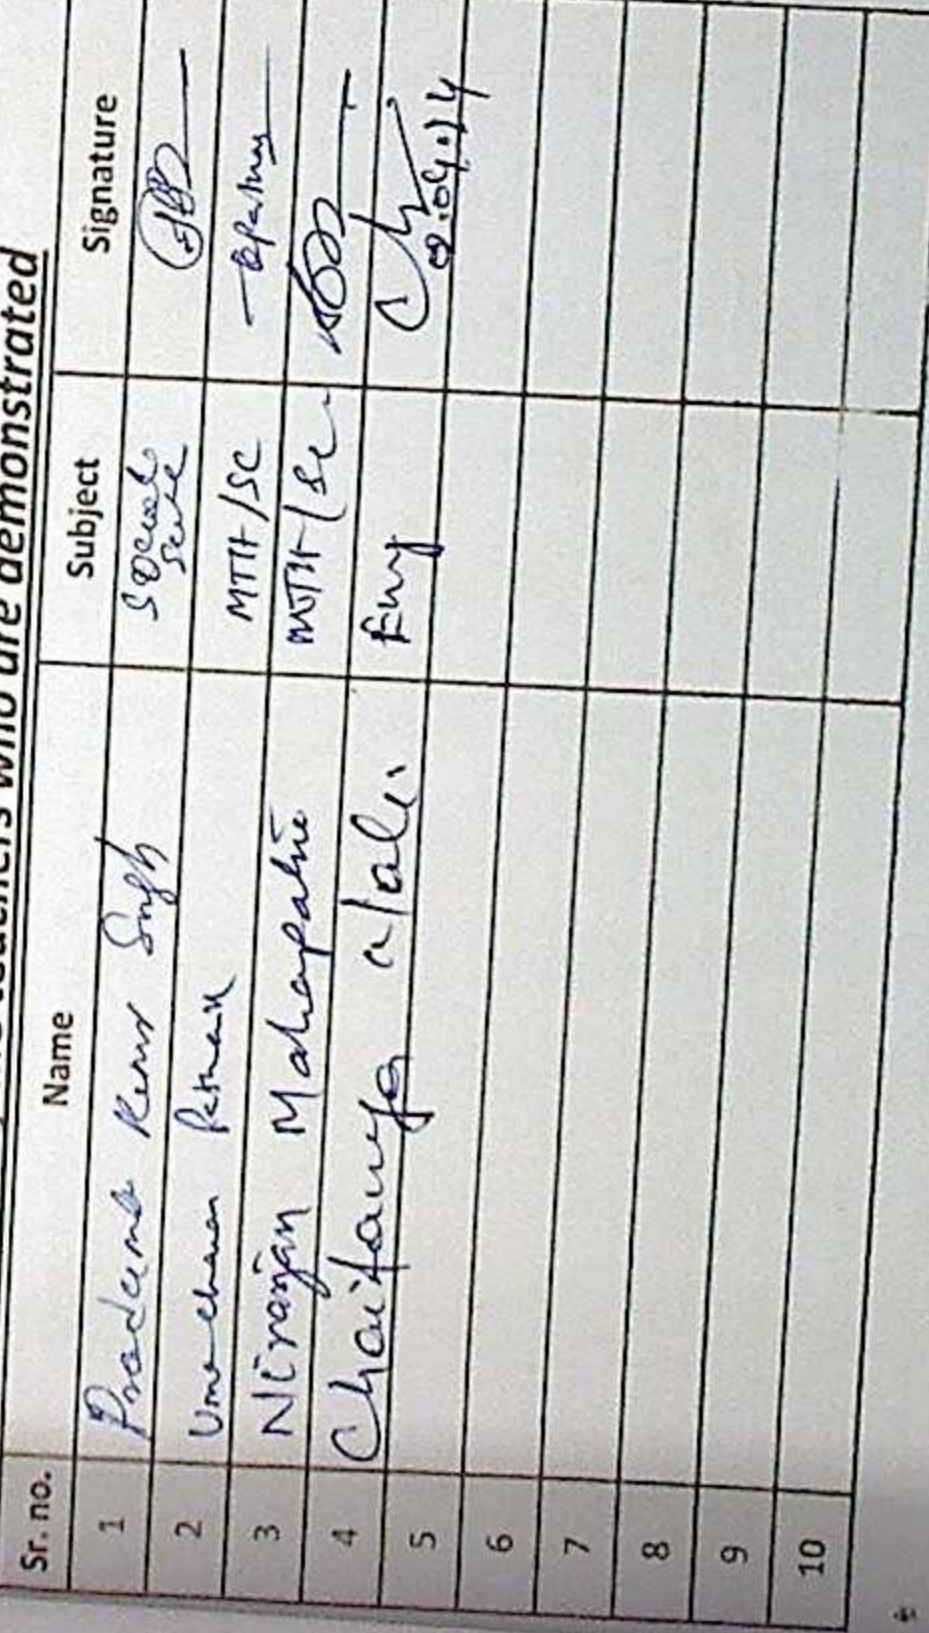 teachers who are demonstrated
Sr. no. Name Subject Signature
1 Pradeema Kumr Singh Social
Scince
2 Umacharan Patnaik MTH/SC
3 Niranjan Mahapatra MTH/Sc
4 Chaitanya Mali Eng
02.04.14
5
6
7
8
9
10